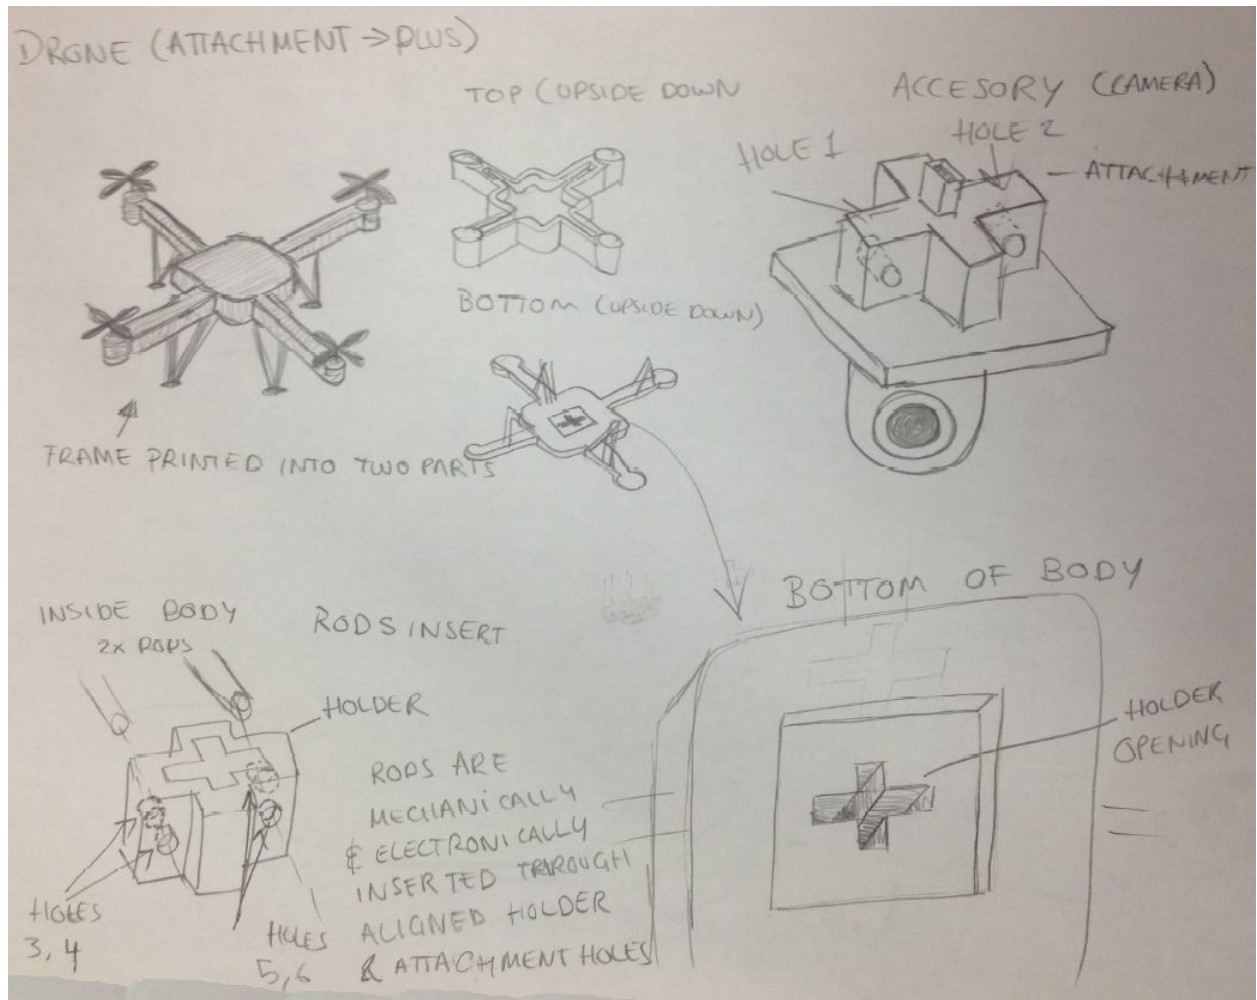 DRONE (ATTACHMENT → PLUS)
TOP (UPSIDE DOWN
ACCESORY (CAMERA)
HOLE 1
HOLE 2
ATTACHMENT
BOTTOM (UPSIDE DOWN)
FRAME PRINTED INTO TWO PARTS
INSIDE BODY
2X RODS
RODS INSERT
HOLDER
BOTTOM OF BODY
HOLDER
OPENING
RODS ARE
MECHANICALLY
& ELECTRONICALLY
INSERTED THROUGH
ALIGNED HOLDER
& ATTACHMENT HOLES
HOLES
3, 4
HOLES
5, 6